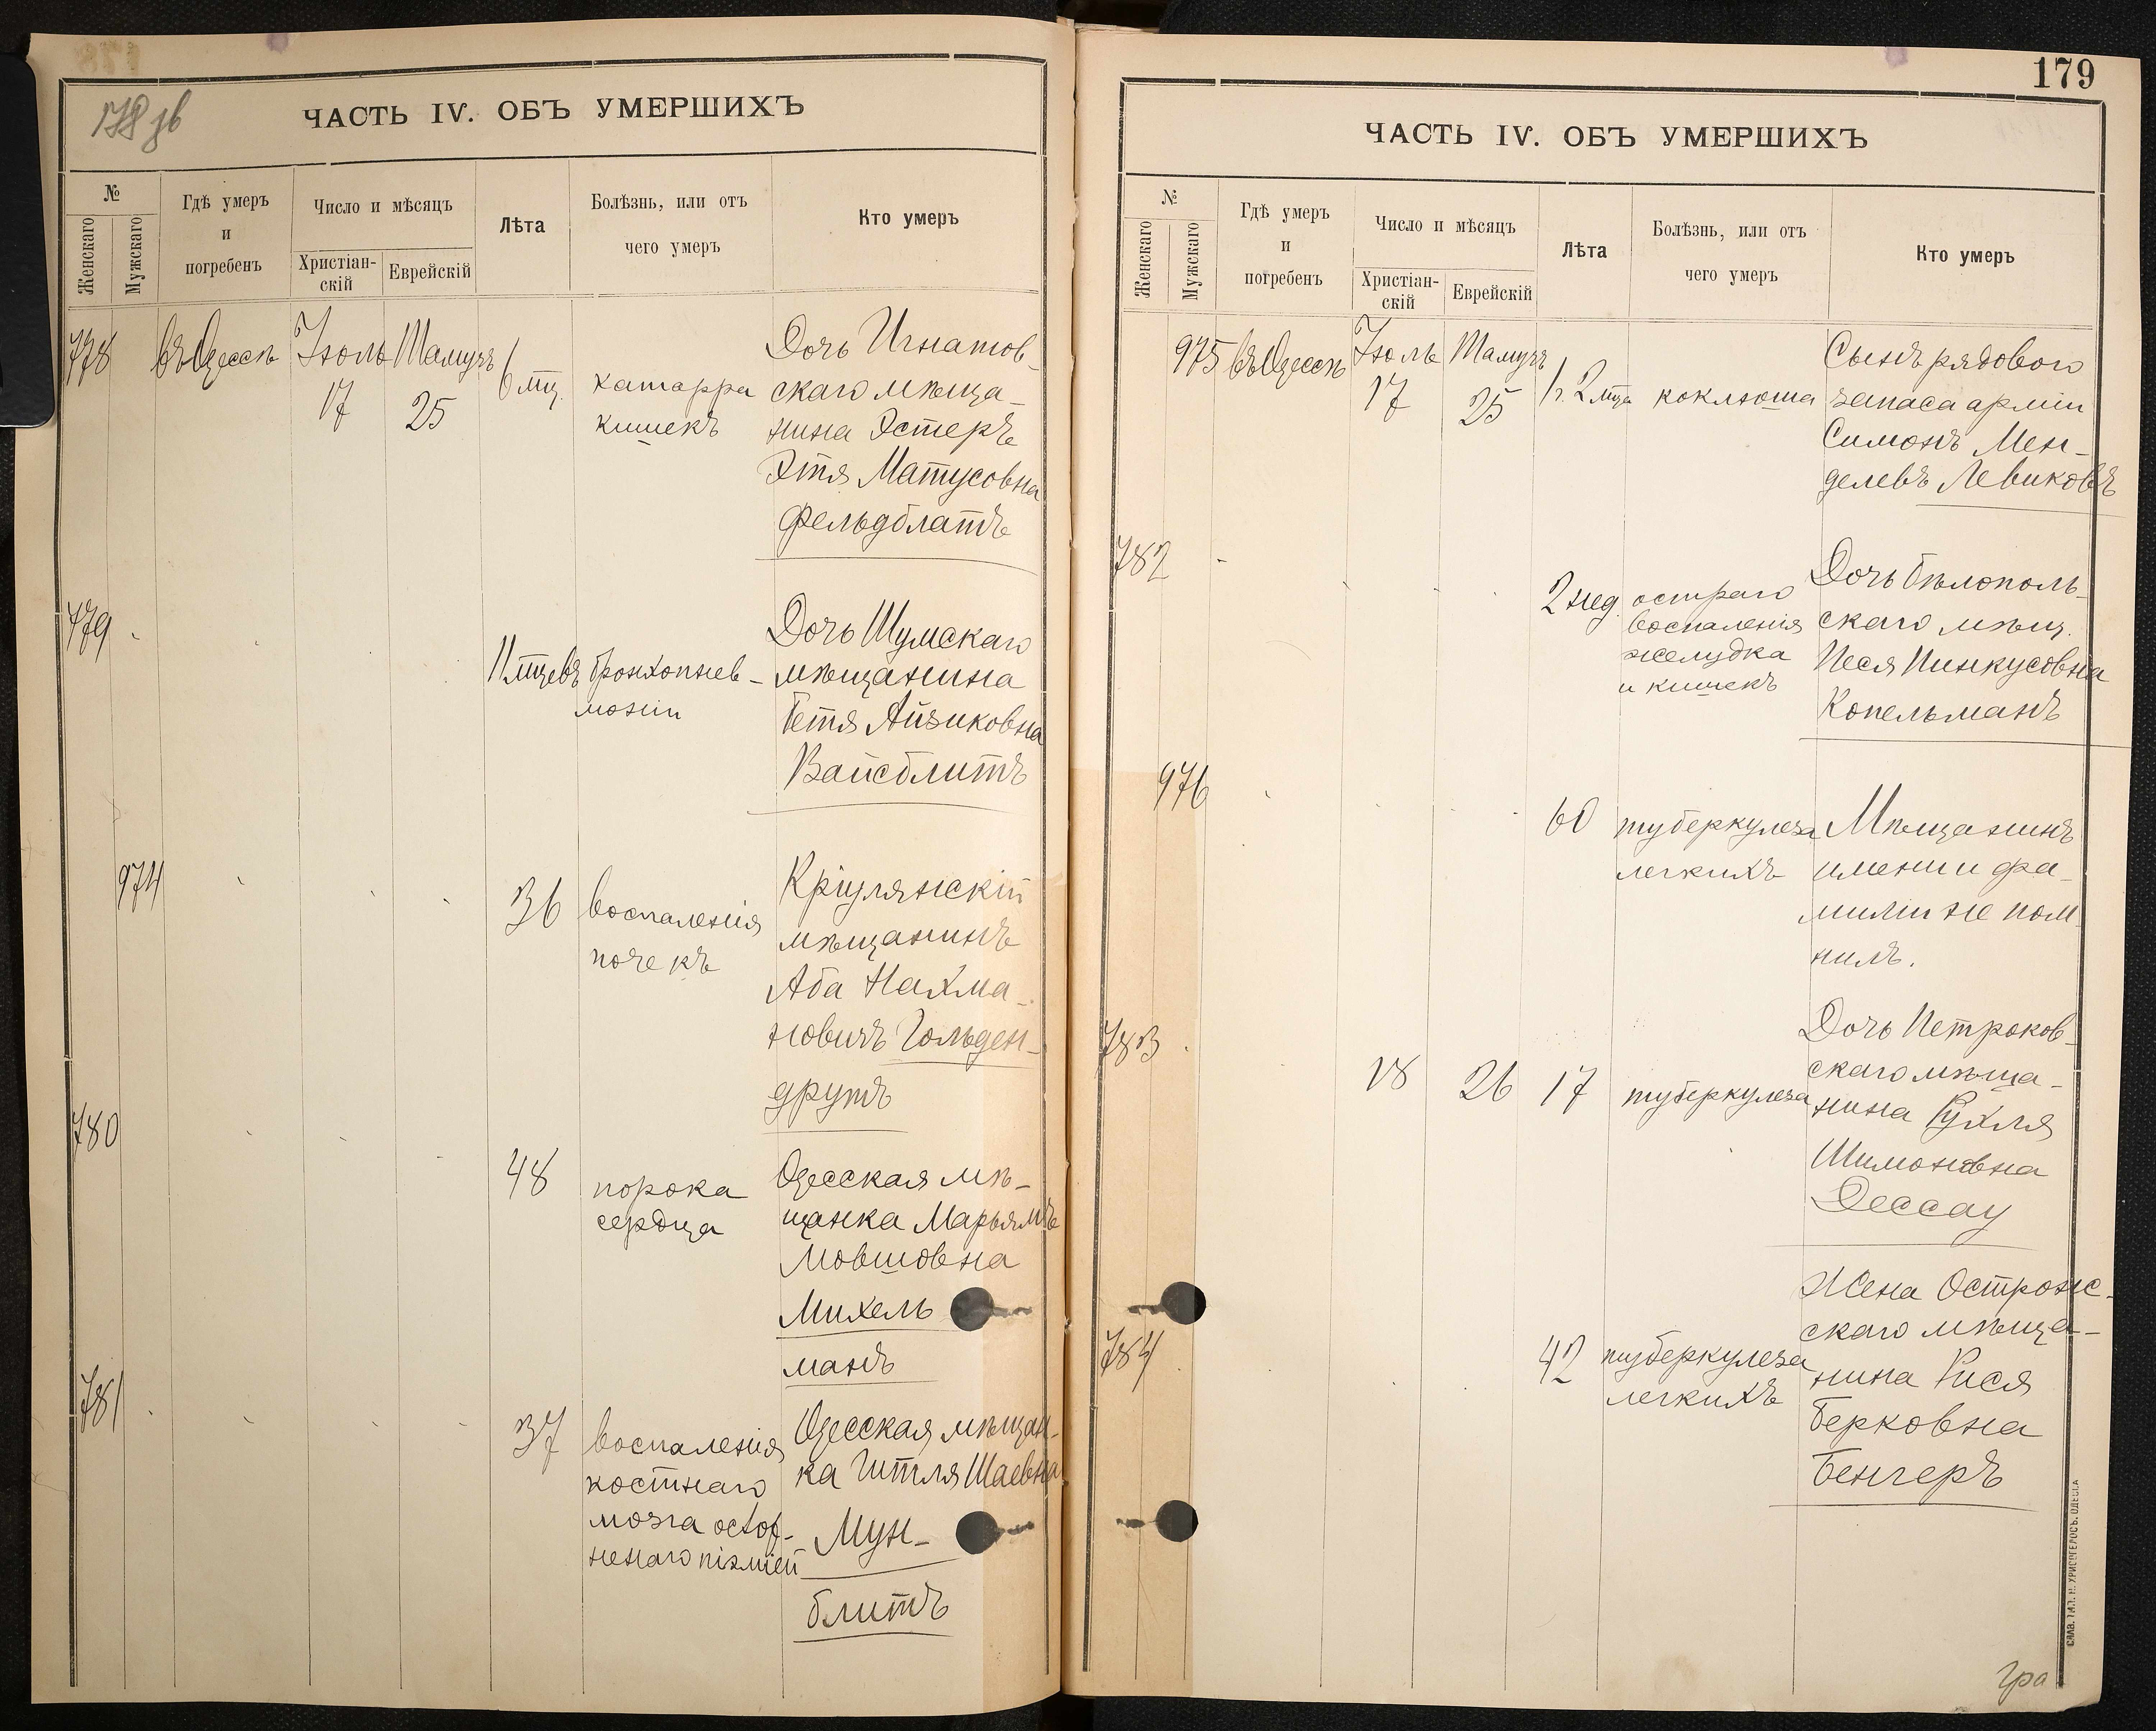 178 зв
ЧАСТЬ IV. ОБЪ УМЕРШИХЪ
№
Женскаго
Мужскаго
Гдѣ умеръ
и
погребенъ
Число и мѣсяцъ
Христіан-
скій
Еврейскій
Лѣта
Болѣзнь, или отъ
чего умеръ
Кто умеръ
778
въ Одессѣ
Іюль
17
Тамузъ
25
6 мц.
катарра
кишекъ
Дочь Игнатов-
скаго мѣща-
нина Эстеръ
Этя Матусовна
Фельдблатъ
779
11 мцевъ
бронхопнев-
моніи
Дочь Шумскаго
мѣщанина
Бетя Айзиковна
Вайсблитъ
974
36
воспаленія
почекъ
Кріулянскій
мѣщанинъ
Аба Нахма-
новичъ Гольден-
друтъ
780
48
порока
сердца
Одесская мѣ-
щанка Марьямъ
Мовшовна
Михель
манъ
781
37
воспаленія
костнаго
мозга ослож-
неннаго піэміей
Одесская мѣщан-
ка Гитля Шаевна
Мун-
блитъ
179
ЧАСТЬ IV. ОБЪ УМЕРШИХЪ
№
Женскаго
Мужскаго
Гдѣ умеръ
и
погребенъ
Число и мѣсяцъ
Христіан-
скій
Еврейскій
Лѣта
Болѣзнь, или отъ
чего умеръ
Кто умеръ
975
въ Одессѣ
Іюль
17
Тамузъ
25
1 г. 2 мца
коклюша
Сынъ рядового
запаса арміи
Симонъ Мен-
делевъ Левиковъ
782
2 нед.
остраго
воспаленія
желудка
и кишекъ
Дочь Бѣлополь-
скаго мѣщ.
Песя Пинкусовна
Копельманъ
976
60
туберкулеза
легкихъ
Мѣщанинъ
имени и фа-
миліи не пом-
нилъ.
783
18
26
17
туберкулеза
Дочь Петроков-
скаго мѣща-
нина Рухля
Шимоновна
Дессау
784
42
туберкулеза
легкихъ
Жена Острож-
скаго мѣща-
нина Рися
Берковна
Бенгеръ
СЛАВ. ТИП. Н. ХРИСОГЕЛОСЪ. ОДЕССА
Гра